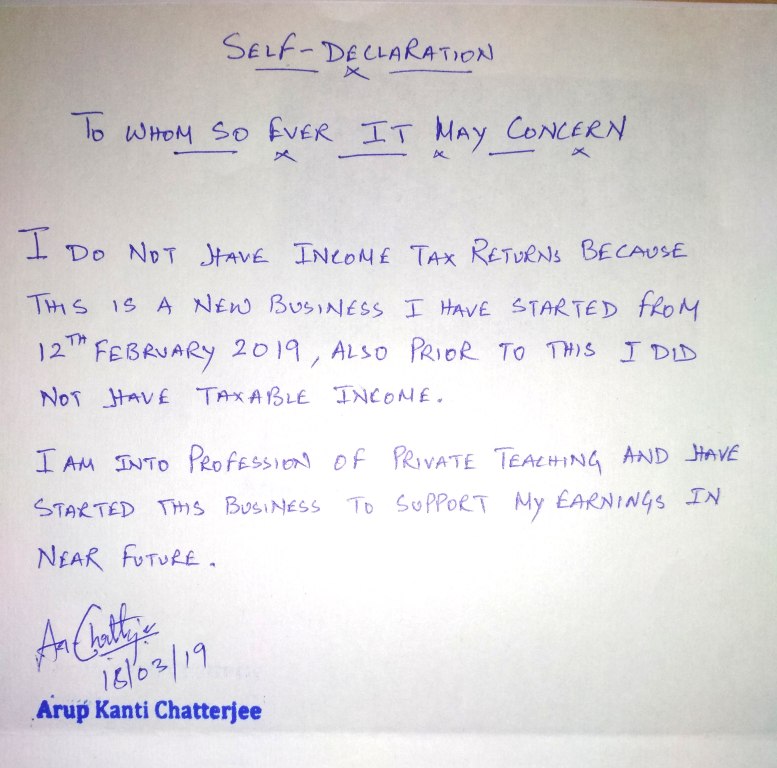 SELF-DECLARATION
TO WHOM SO EVER IT MAY CONCERN
I DO NOT HAVE INCOME TAX RETURNS BECAUSE
THIS IS A NEW BUSINESS I HAVE STARTED FROM
12TH FEBRUARY 2019, ALSO PRIOR TO THIS I DID
NOT HAVE TAXABLE INCOME.
I AM INTO PROFESSION OF PRIVATE TEACHING AND HAVE
STARTED THIS BUSINESS TO SUPPORT MY EARNINGS IN
NEAR FUTURE.
18/03/19
Arup Kanti Chatterjee